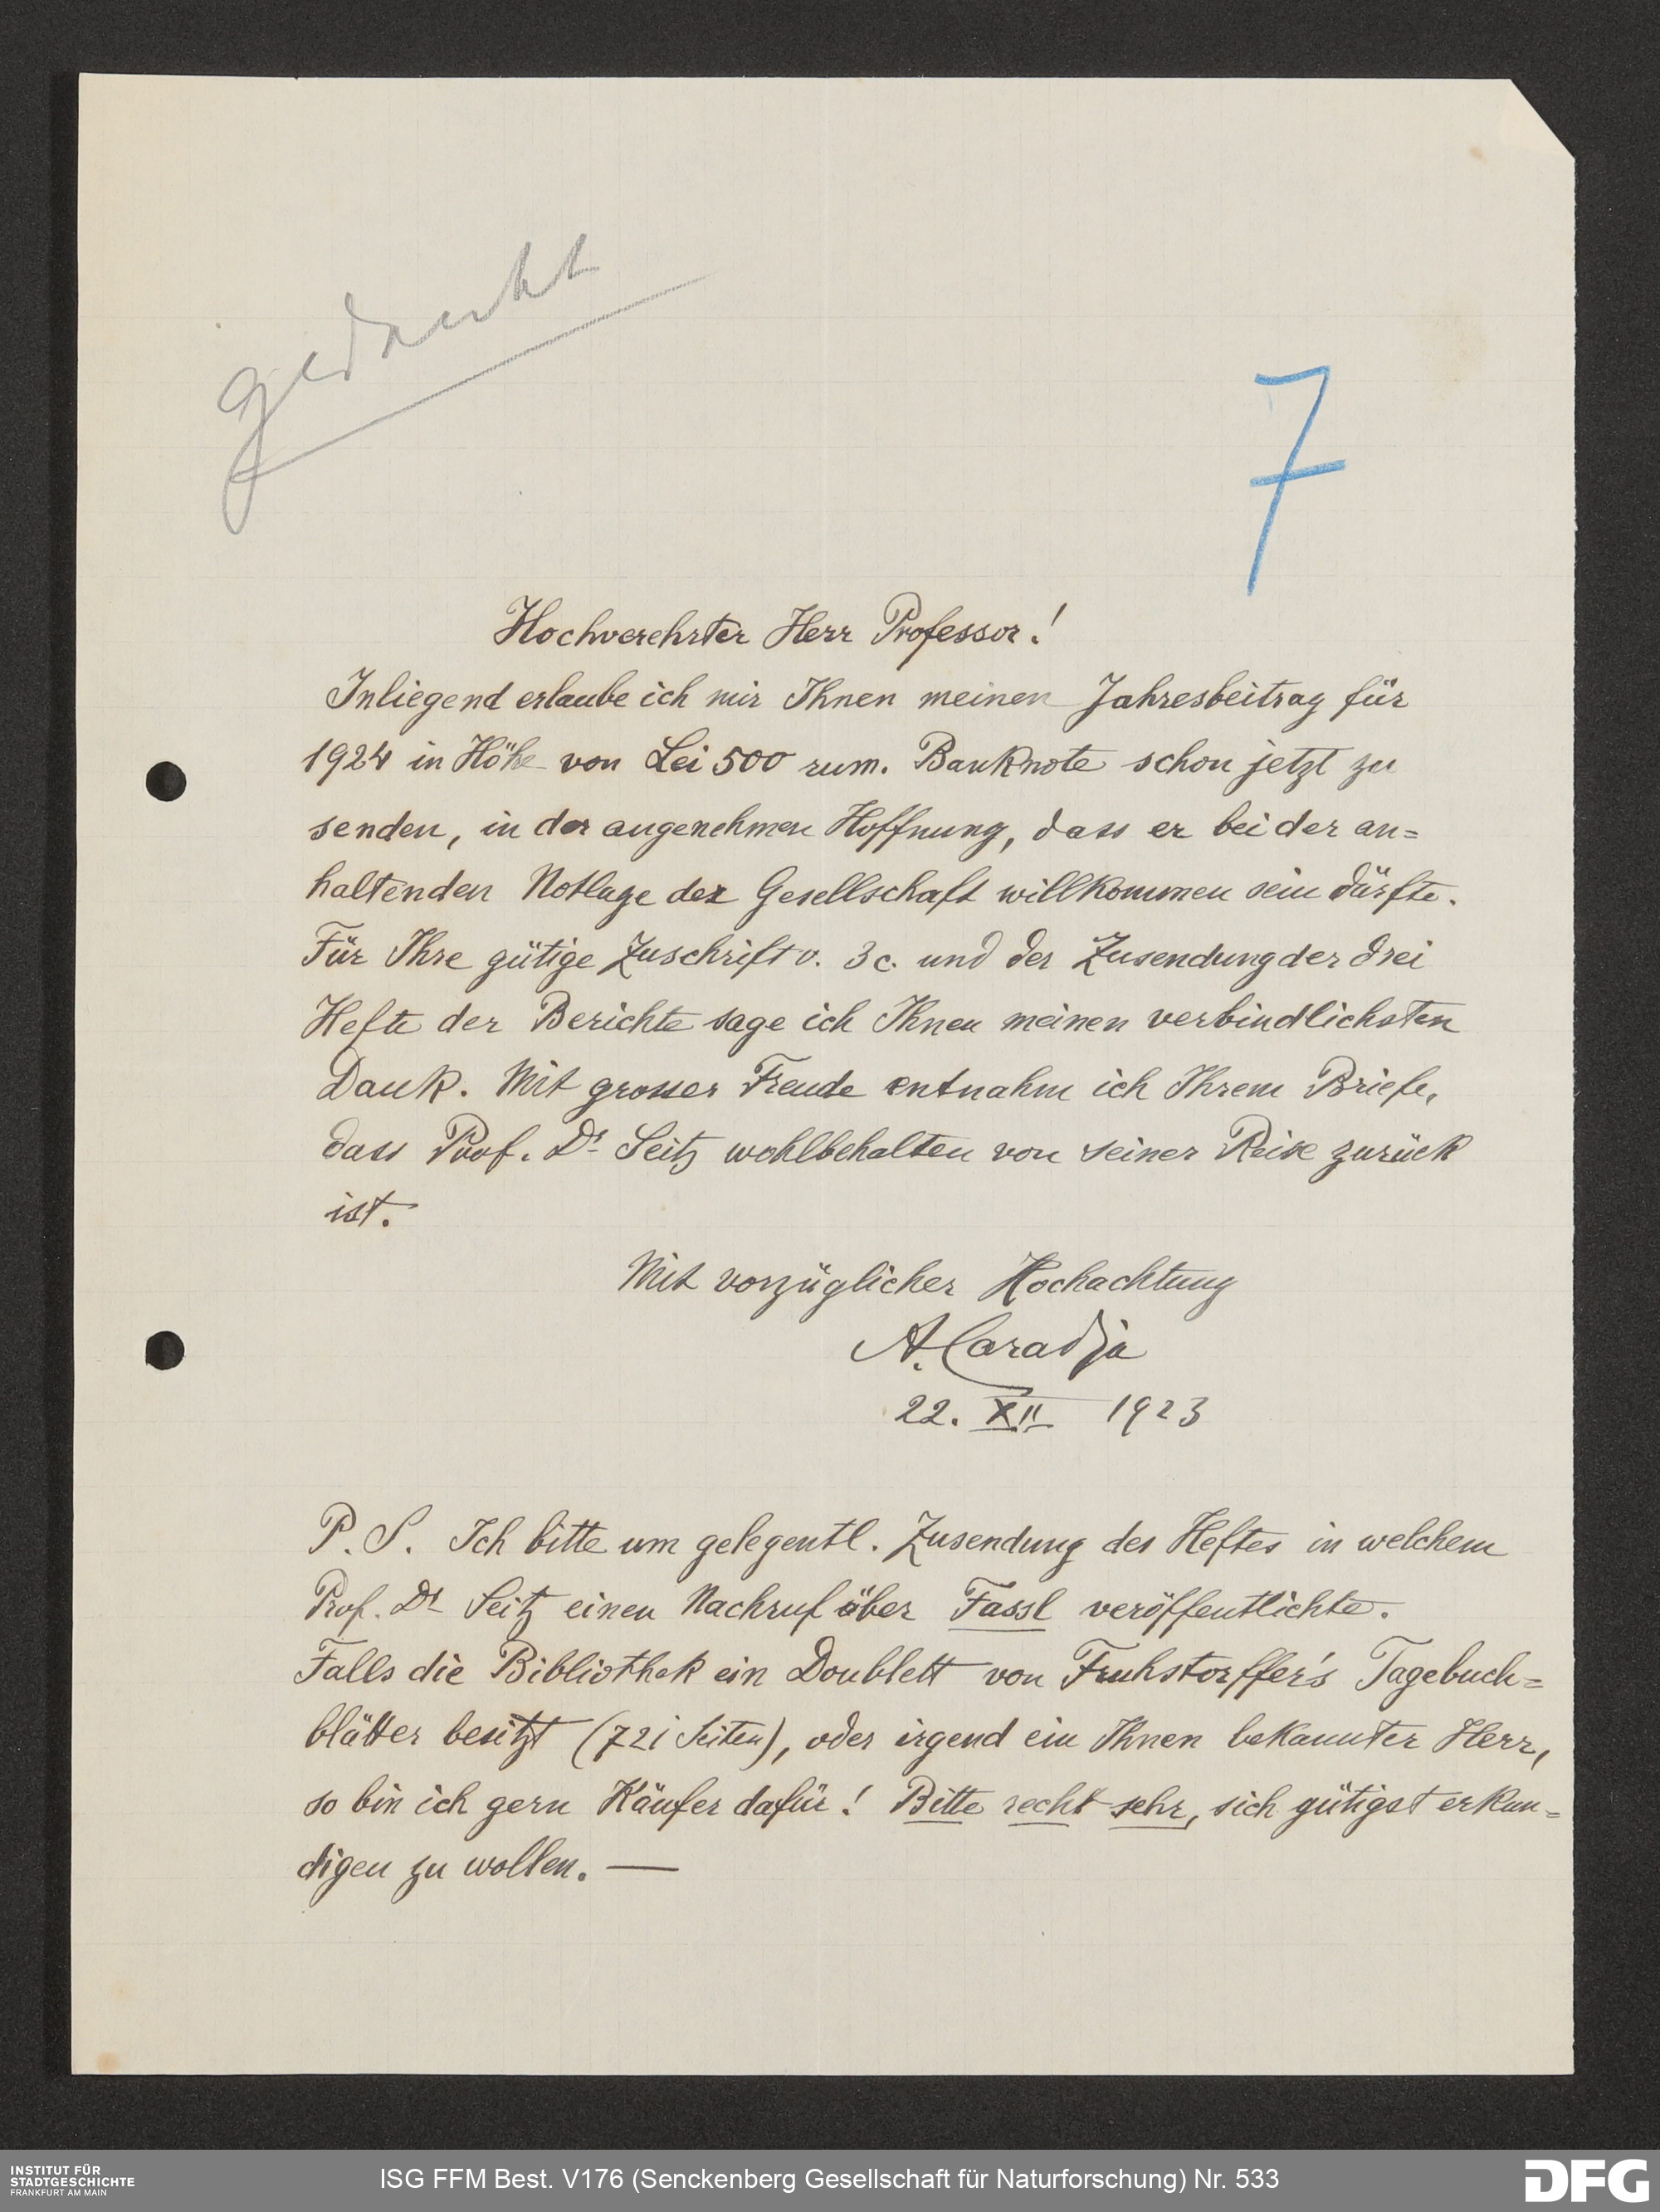 gedankt
7
Hochverehrter Herr Professor!
Inliegend erlaube ich mir Ihnen meinen Jahresbeitrag für
1924 in Höhe von Lei 500 rum. Banknote schon jetzt zu
senden, in der angenehmen Hoffnung, dass er bei der an=
haltenden Notlage der Gesellschaft willkommen sein dürfte.
Für Ihre gütige Zuschrift v. 3 c. und der Zusendung der drei
Hefte der Berichte sage ich Ihnen meinen verbindlichsten
Dank. Mit grosser Freude entnahm ich Ihrem Briefe,
dass Prof. Dr Seitz wohlbehalten von seiner Reise zurück
ist.
Mit vorzüglicher Hochachtung
A. Caradja
22. XII 1923
P. S. Ich bitte um gelegentl. Zusendung des Heftes in welchem
Prof. Dr Seitz einen Nachruf über Fassl veröffentlichte.
Falls die Bibliothek ein Doublett von Fruhstorffer's Tagebuch=
blätter besitzt (721 Seiten), oder irgend ein Ihnen bekannter Herr,
so bin ich gern Käufer dafür! Bitte recht sehr, sich gütigst erkun=
digen zu wollen. —
INSTITUT FÜR
STADTGESCHICHTE
FRANKFURT AM MAIN
ISG FFM Best. V176 (Senckenberg Gesellschaft für Naturforschung) Nr. 533
DFG